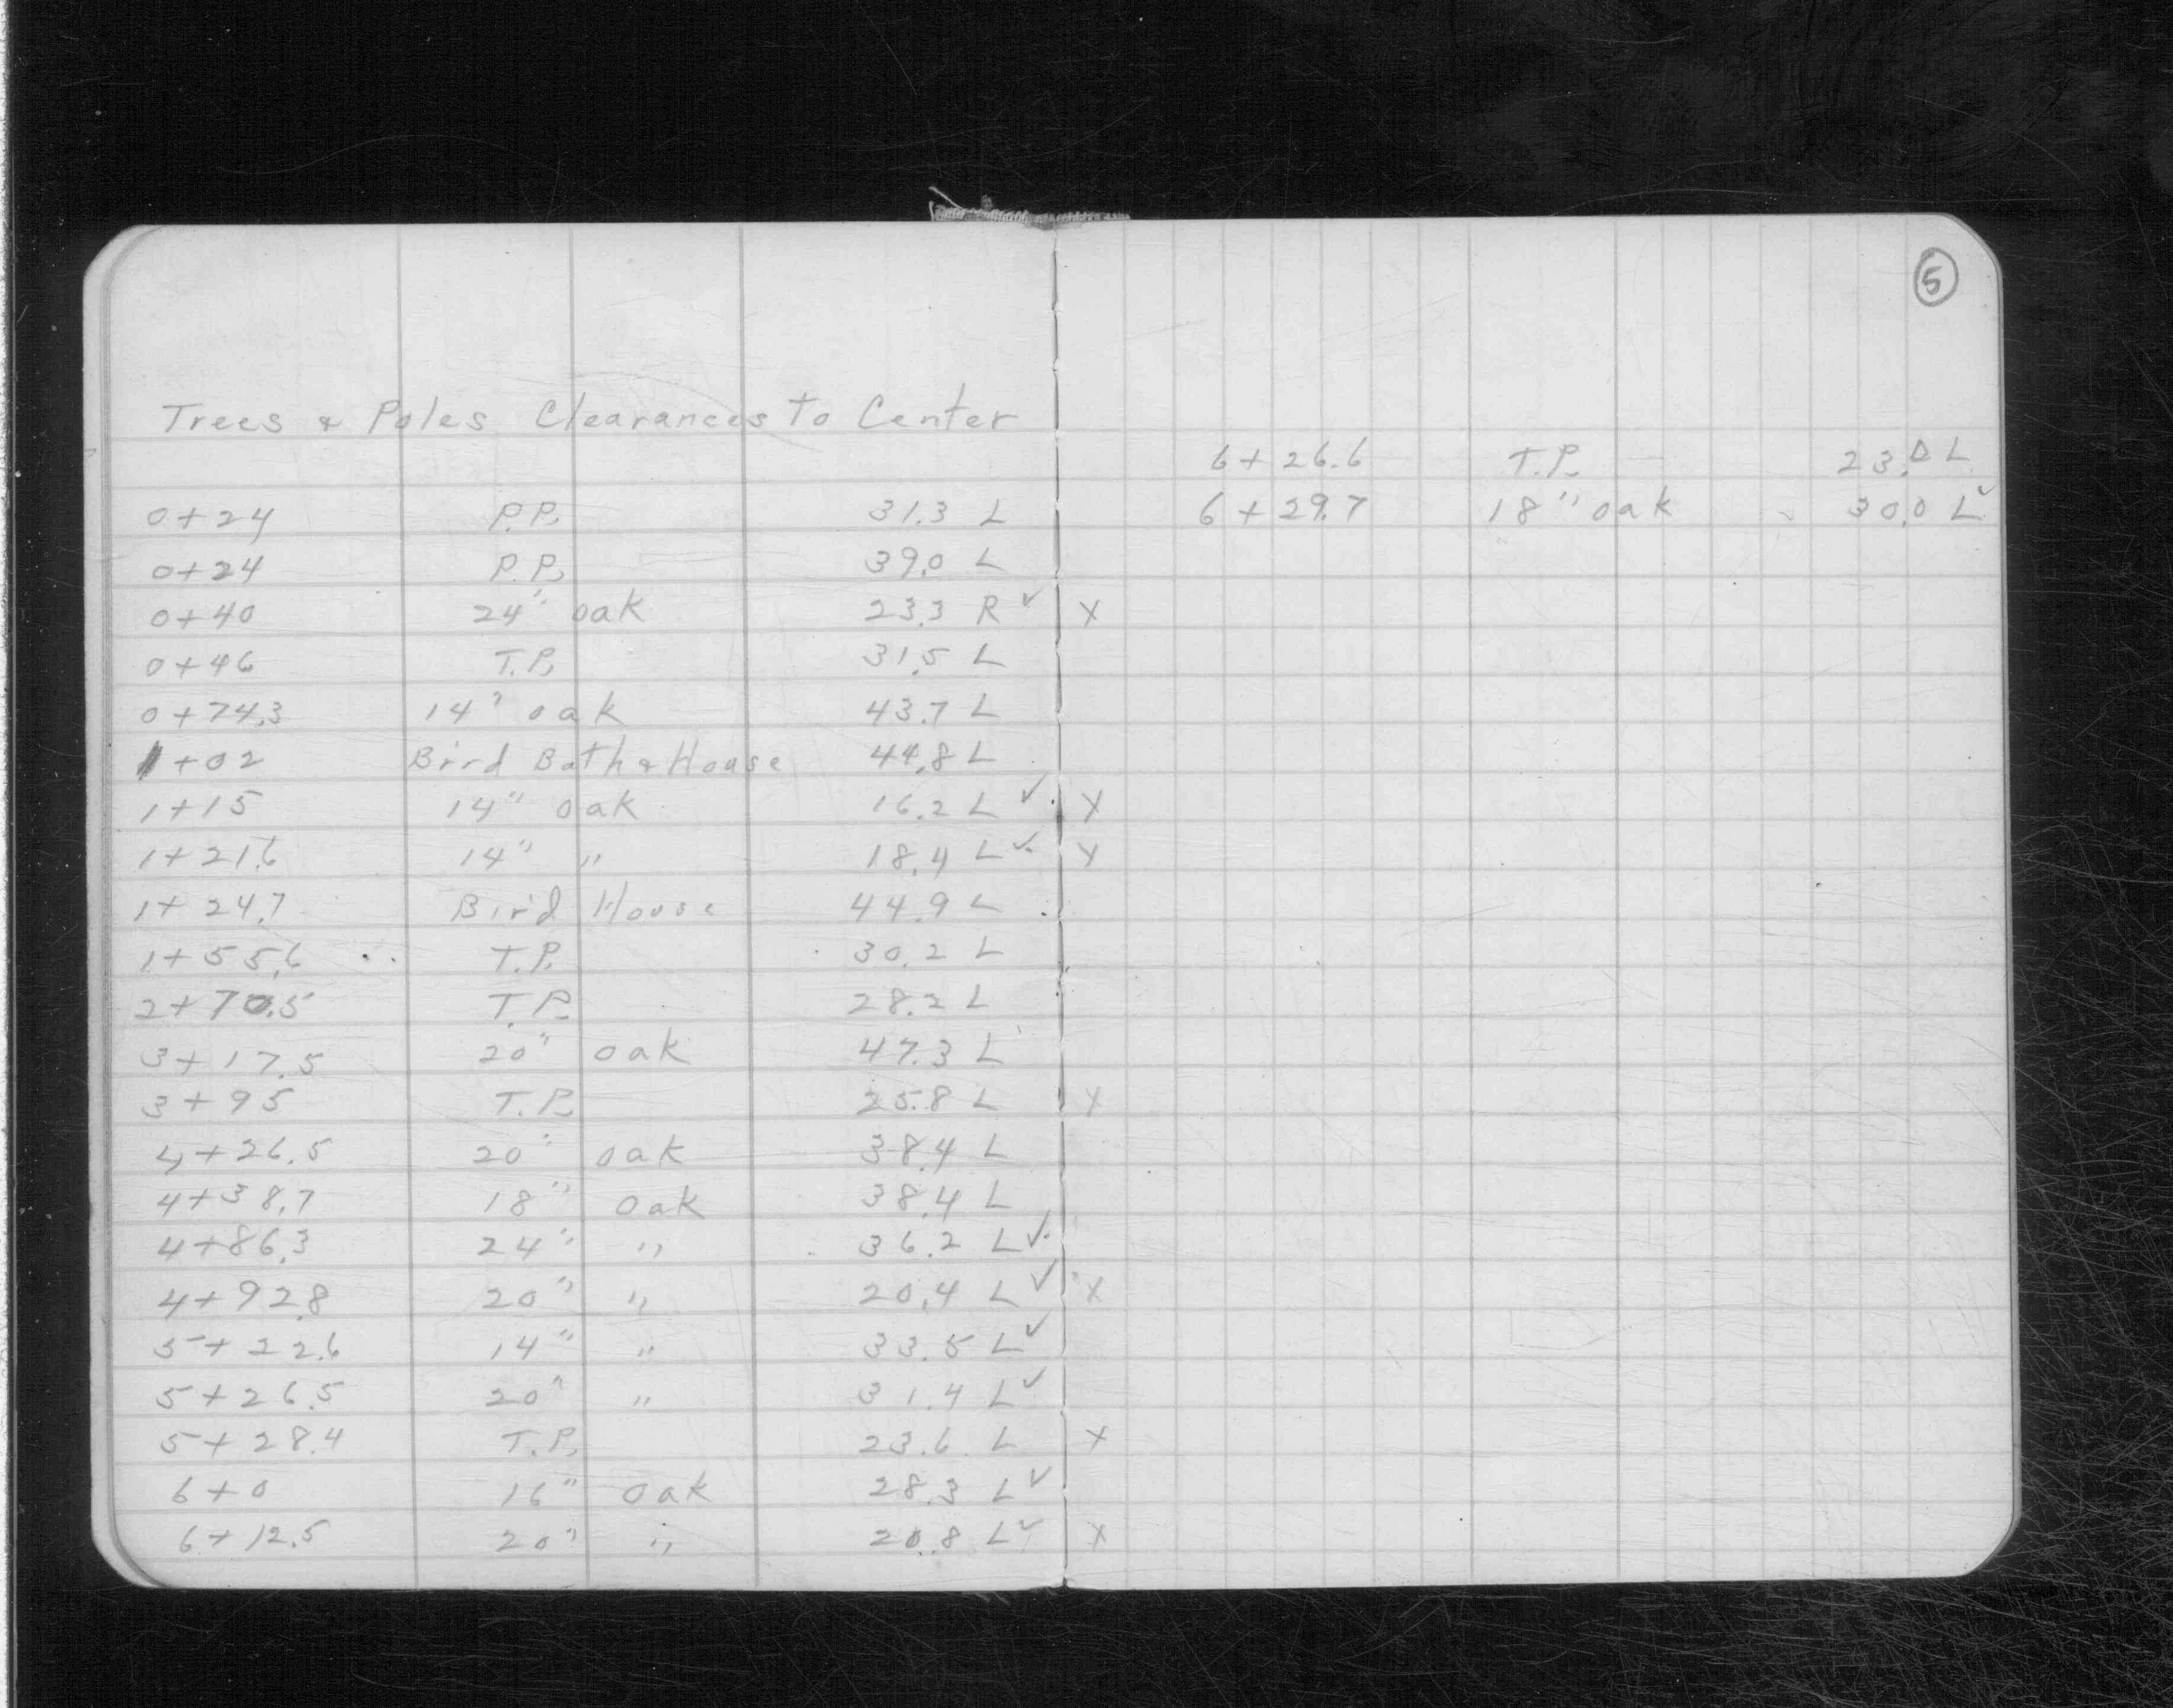 Trees & Poles Clearances to Center
0+24 P.P. 31.3 L
0+24 P.P. 39.0 L
0+40 24" oak 23.3 R ✓ X
0+46 T.P. 31.5 L
0+74.3 14" oak 43.7 L
1+02 Bird Bath & House 44.8 L
1+15 14" oak 16.2 L ✓ X
1+21.6 14" " 18.4 L ✓ X
1+24.7 Bird House 44.9 L
1+55.6 T.P. 30.2 L
2+70.5 T.P. 28.2 L
3+17.5 20" oak 47.3 L
3+95 T.P. 25.8 L X
4+26.5 20" oak 38.4 L
4+38.7 18" oak 38.4 L
4+86.3 24" " 36.2 L ✓
4+92.8 20" " 20.4 L ✓ X
5+22.6 14" " 33.5 L ✓
5+26.5 20" " 31.4 L ✓
5+28.4 T.P. 23.6 L X
6+0 16" oak 28.3 L ✓
6+12.5 20" " 20.8 L ✓ X
5
6+26.6 T.P. 23.0 L
6+29.7 18" oak 30.0 L ✓